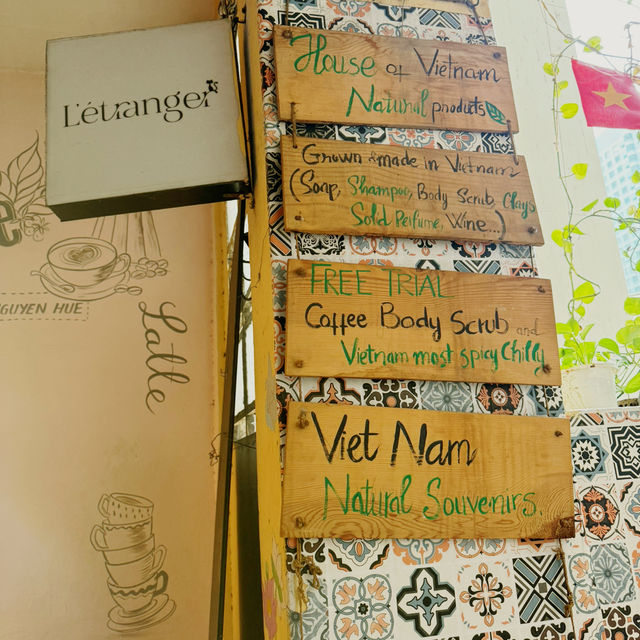 L'étranger
House of Vietnam
Natural products
Grown & made in Vietnam
(Soap, Shampoo, Body Scrub, Clays
Solid Perfume, Wine...)
FREE TRIAL
Coffee Body Scrub and
Vietnam most spicy Chilly
Viet Nam
Natural Souvenirs.
e
NGUYEN HUE
Latte